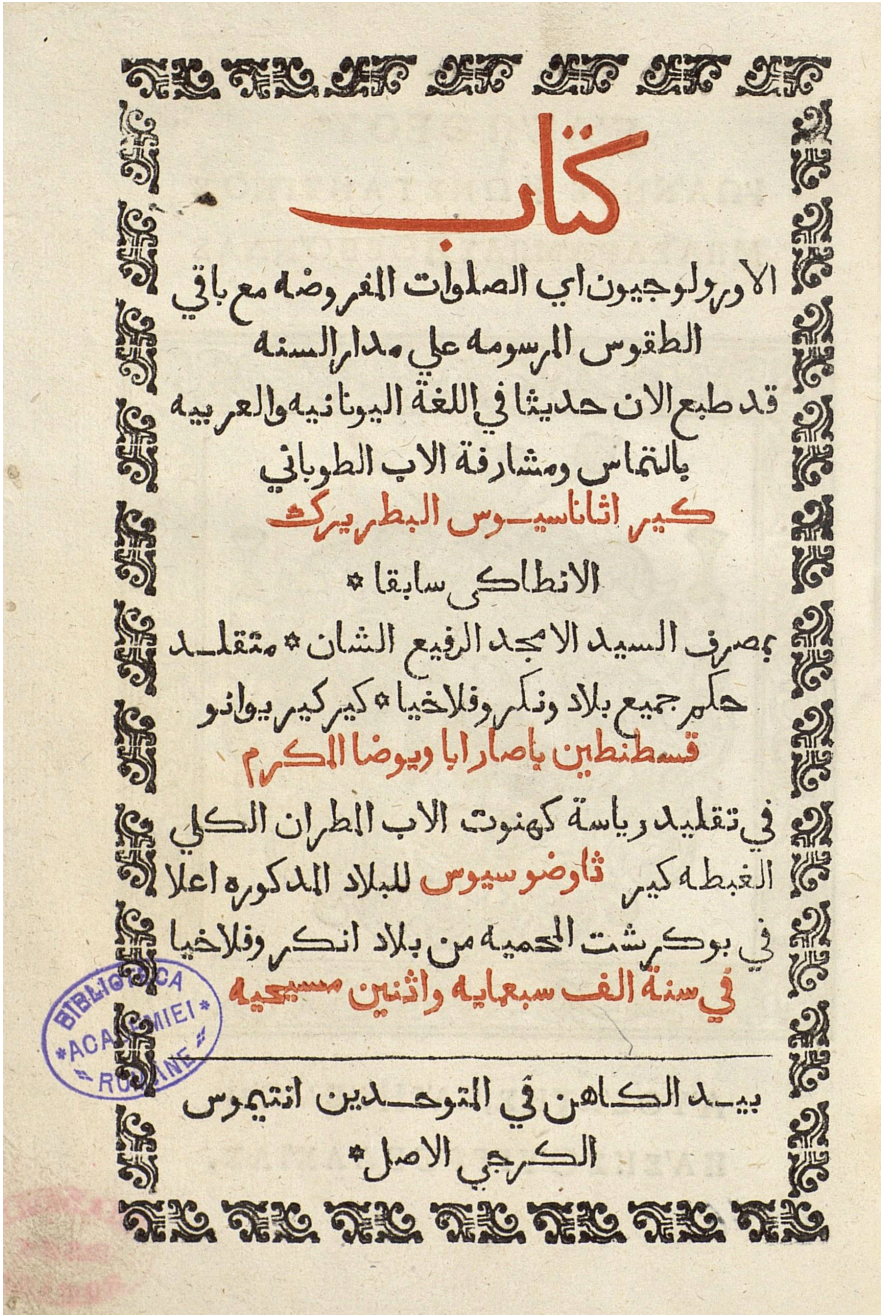 كتاب
الاورولوجيون اي الصلوات المفروضه مع باقي
الطقوس المرسومه علي مدار السنه
قد طبع الان حديثا في اللغة اليونانيه والعربيه
بالتماس ومشارفة الاب الطوباني
كير اثاناسيوس البطريرك
الانطاكي سابقا *
بمصرف السيد الامجد الرفيع الشان * متقلد
حكم جميع بلاد ونكروفلاخيا * كيركير يوانو
قسطنطين باصارابا ويوضا المكرم
في تقليد رياسة كهنوت الاب المطران الكلي
الغبطه كير ثاوضوسيوس للبلاد المدكوره اعلا
في بوكرشت المحميه من بلاد انكروفلاخيا
في سنة الف سبعمايه واثنين مسيحيه
BIBLIOTECA
*ACADEMIEI*
= ROMÂNE =
بيد الكاهن في المتوحدين انتيموس
الكرجي الاصل *